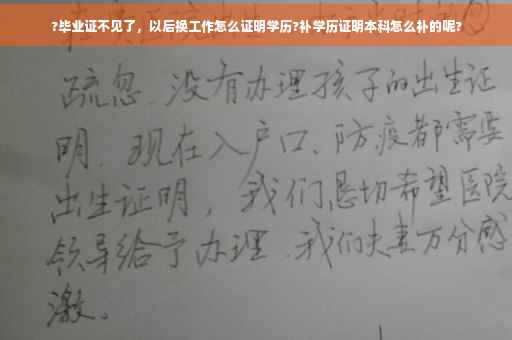 ?毕业证不见了，以后换工作怎么证明学历?补学历证明本科怎么补的呢?
疏忽、没有办理孩子的出生证
明、现在入户口、防疫都需要
出生证明，我们恳切希望医院
领导给予办理、我们夫妻万分感
激。